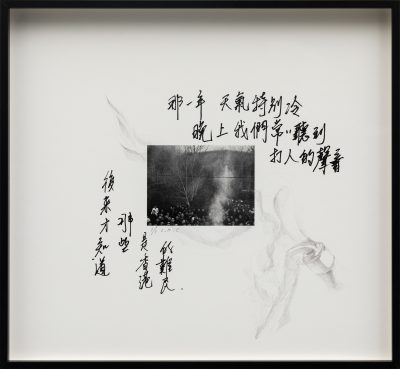 那一年 天氣特别冷
晚上我們常〃聽到
打人的聲音
後來才知道
那些
是香港
的難民.